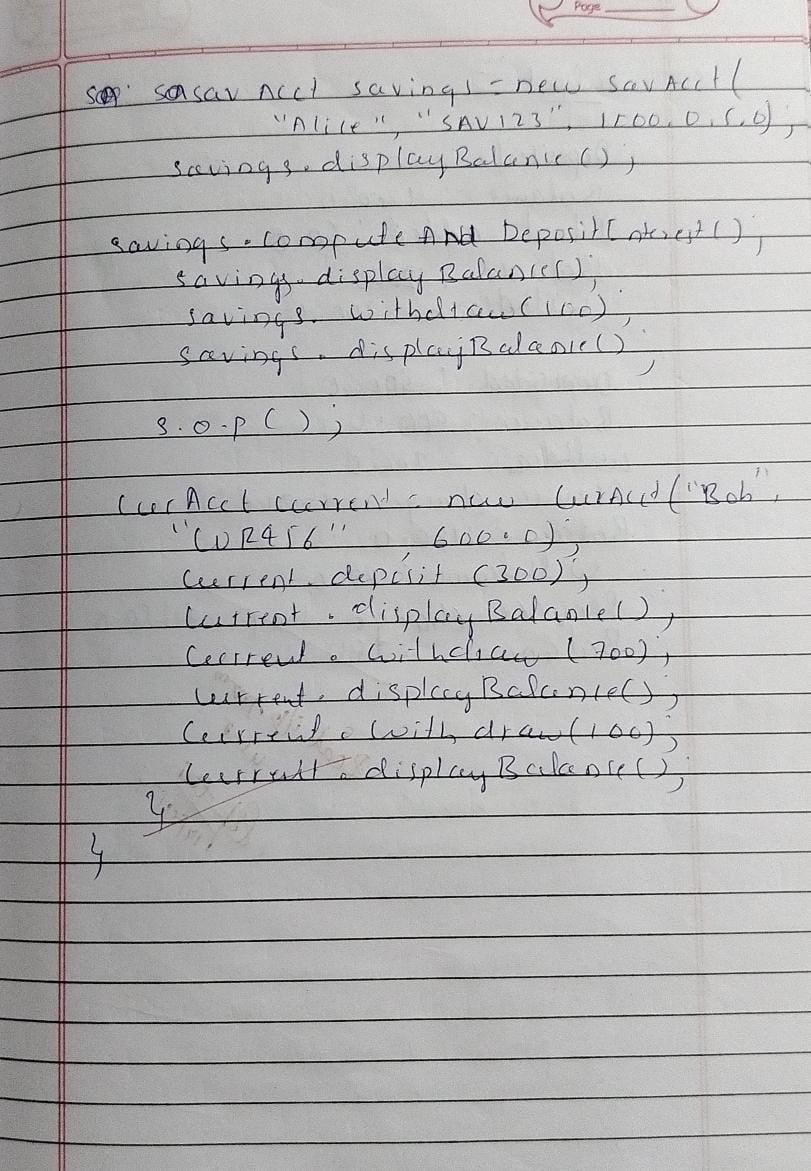 Page
savAcct savings = new SavAcct(
"Alice", "SAV123", 1500.0, 5.0);
savings.displayBalance();
savings.computeAndDepositInterest();
savings.displayBalance();
savings.withdraw(100);
savings.displayBalance();
s.o.p();
CurAcct current = new CurAcct("Bob",
"CUR456", 600.0);
current.deposit(300);
current.displayBalance();
current.withdraw(700);
current.displayBalance();
current.withdraw(100);
current.displayBalance();
}
}